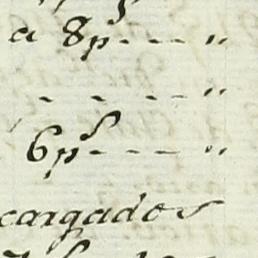 a 8p.--- "
- - - - "
6p^s--- "
cargados